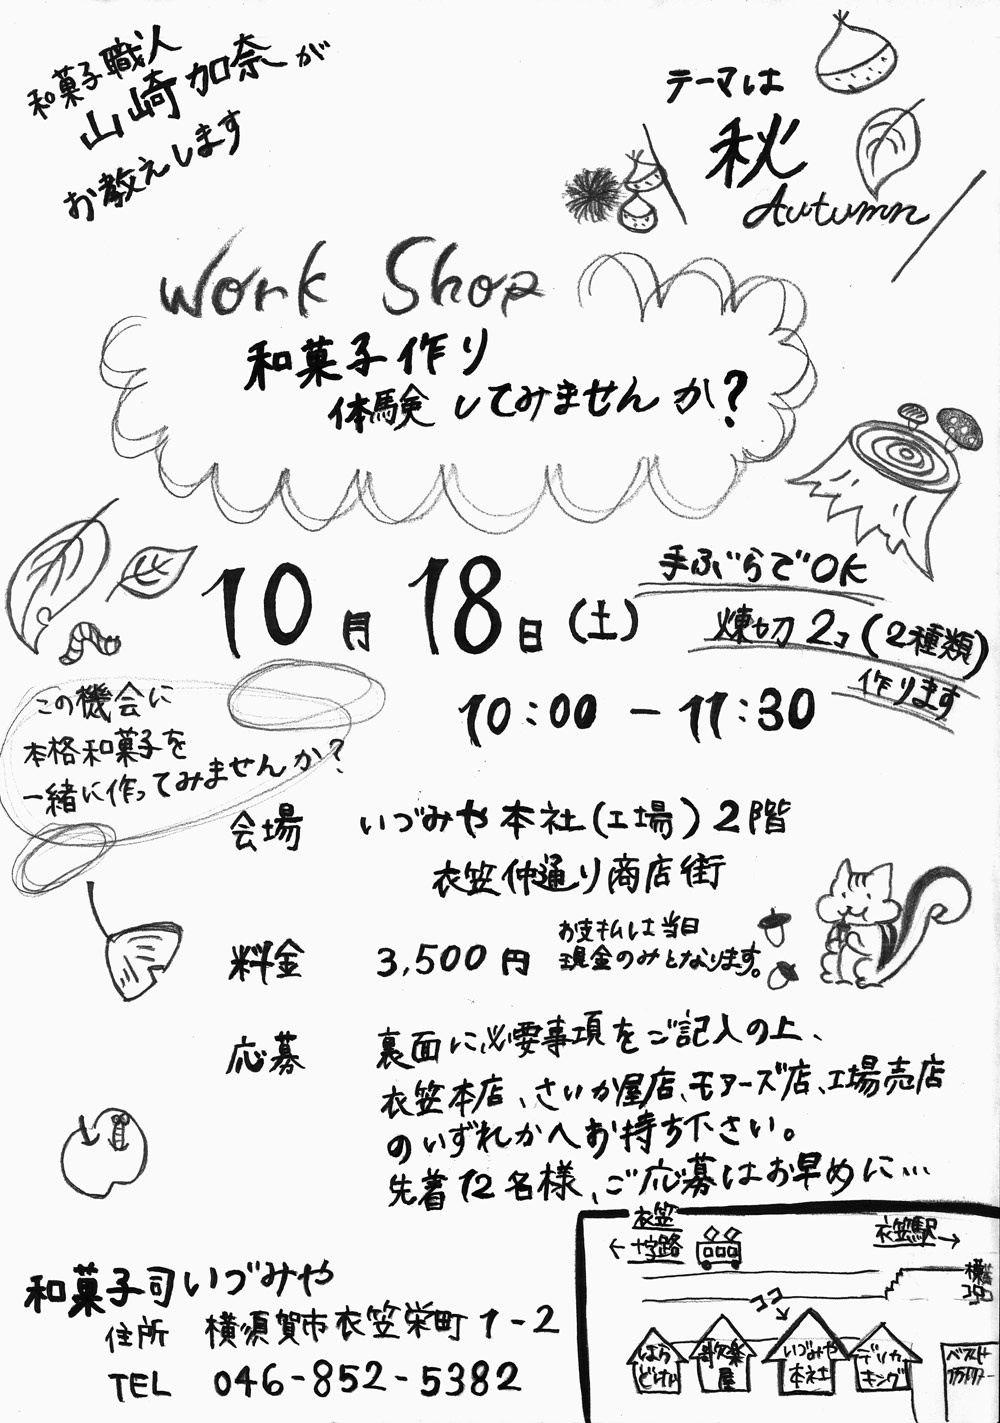 和菓子職人
山崎加奈が
お教えします
テーマは
秋
Autumn
Work Shop
和菓子作り
体験してみませんか?
10月18日(土)
手ぶらでOK
煉切2コ(2種類)
作ります
10:00 - 11:30
この機会に
本格和菓子を
一緒に作ってみませんか?
会場 いづみや本社(工場)2階
衣笠仲通り商店街
料金 3,500円
お支払は当日
現金のみとなります。
応募 裏面に必要事項をご記入の上、
衣笠本店、さいか屋店、モアーズ店、工場売店
のいずれかへお持ち下さい。
先着12名様、ご応募はお早めに…
衣笠
←十字路
衣笠駅→
ココ
はらどけい
歌楽屋
いづみや本社
デリカキング
和菓子司いづみや
住所 横須賀市衣笠栄町1-2
TEL 046-852-5382